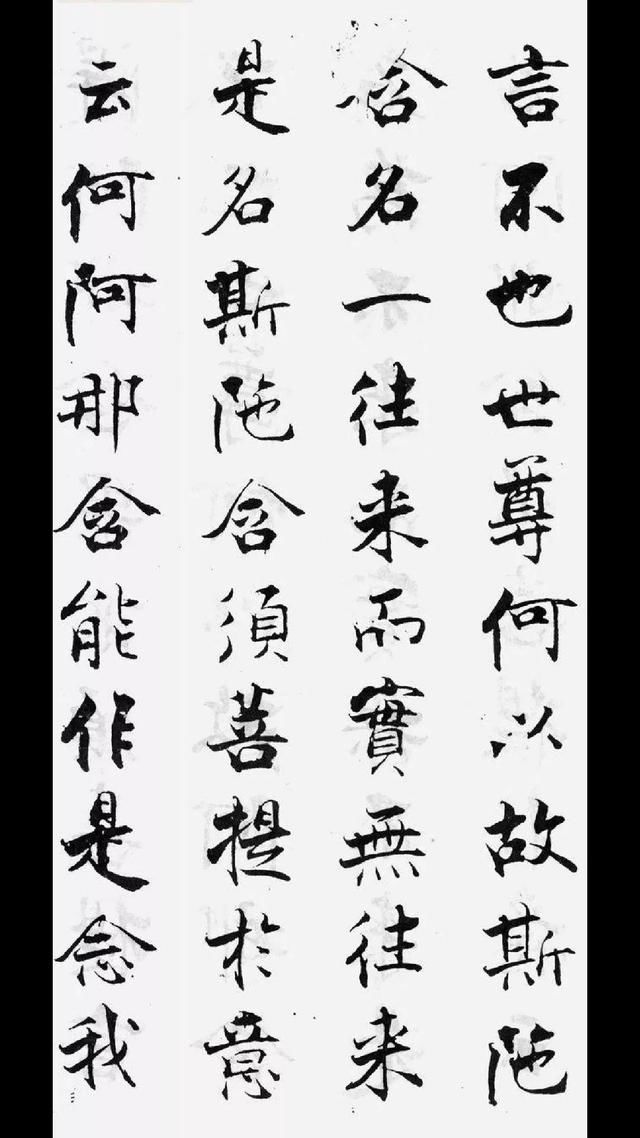 言不也世尊何以故斯陁
含名一往来而實無往来
是名斯陁含須菩提於意
云何阿那含能作是念我